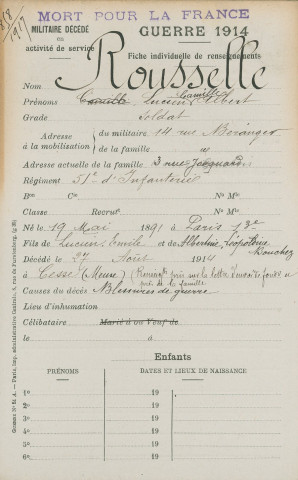 818
1917
MORT POUR LA FRANCE
MILITAIRE DÉCÉDÉ
en
activité de service
GUERRE 1914
Fiche individuelle de renseignements
Nom Rousselle
Prénoms Camille Lucien Camille Albert
Grade Soldat
Adresse à la mobilisation du militaire 14 rue Béranger
de famille "
Adresse actuelle de la famille 3 rue Jacquard
Régiment 51e d'Infanterie
Bon Cie N° Mle
Classe Recrut N° Mle
Né le 19 Mai 1891 à Paris 13e
Fils de Lucien Emile et Albertine Léopoldine Bouchez
Décédé le 27 Août 1914
à Cesse (Meuse) (Renseigts pris sur la lettre
par la famille
Causes du décès Blessures de guerre
Lieu d'inhumation
Célibataire Marié à ou Veuf de
le à
Enfants
PRÉNOMS DATES ET LIEUX DE NAISSANCE
1° 19
2° 19
3° 19
4° 19
5° 19
6° 19